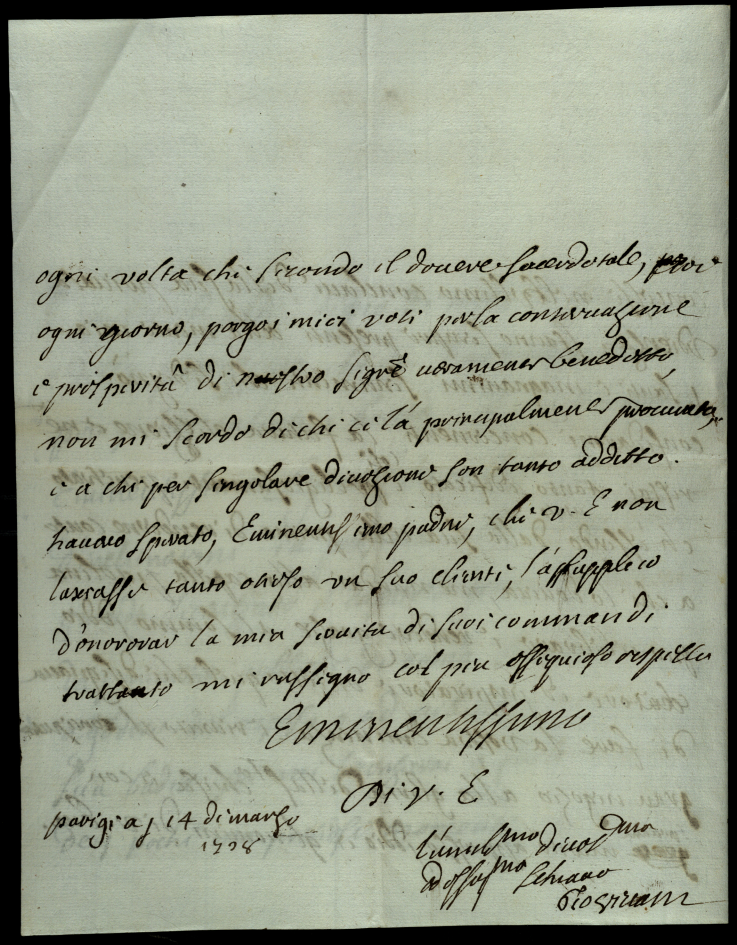 ogni volta chi secondo il dovere sacerdotale,
ogni giorno, porgo i miei voti per la conservazione
e prosperità di nostro Sigre veramente benedetto,
non mi scordo di chi ci l'á principalmente procurato,
e a chi per singolare divozione son tanto additto.
havavo sperato, Eminentissimo padre, chi v. E non
lasciasse tanto otioso un suo clienti, l'a supplico
d'onorar la mia servitu di suoi commandi
trattanto mi rassegno col piu ossequioso rispetto
Eminentissimo
Di V. E
parigi a j 14 di marzo
1728
l'umilssmo divotmo
schiavo